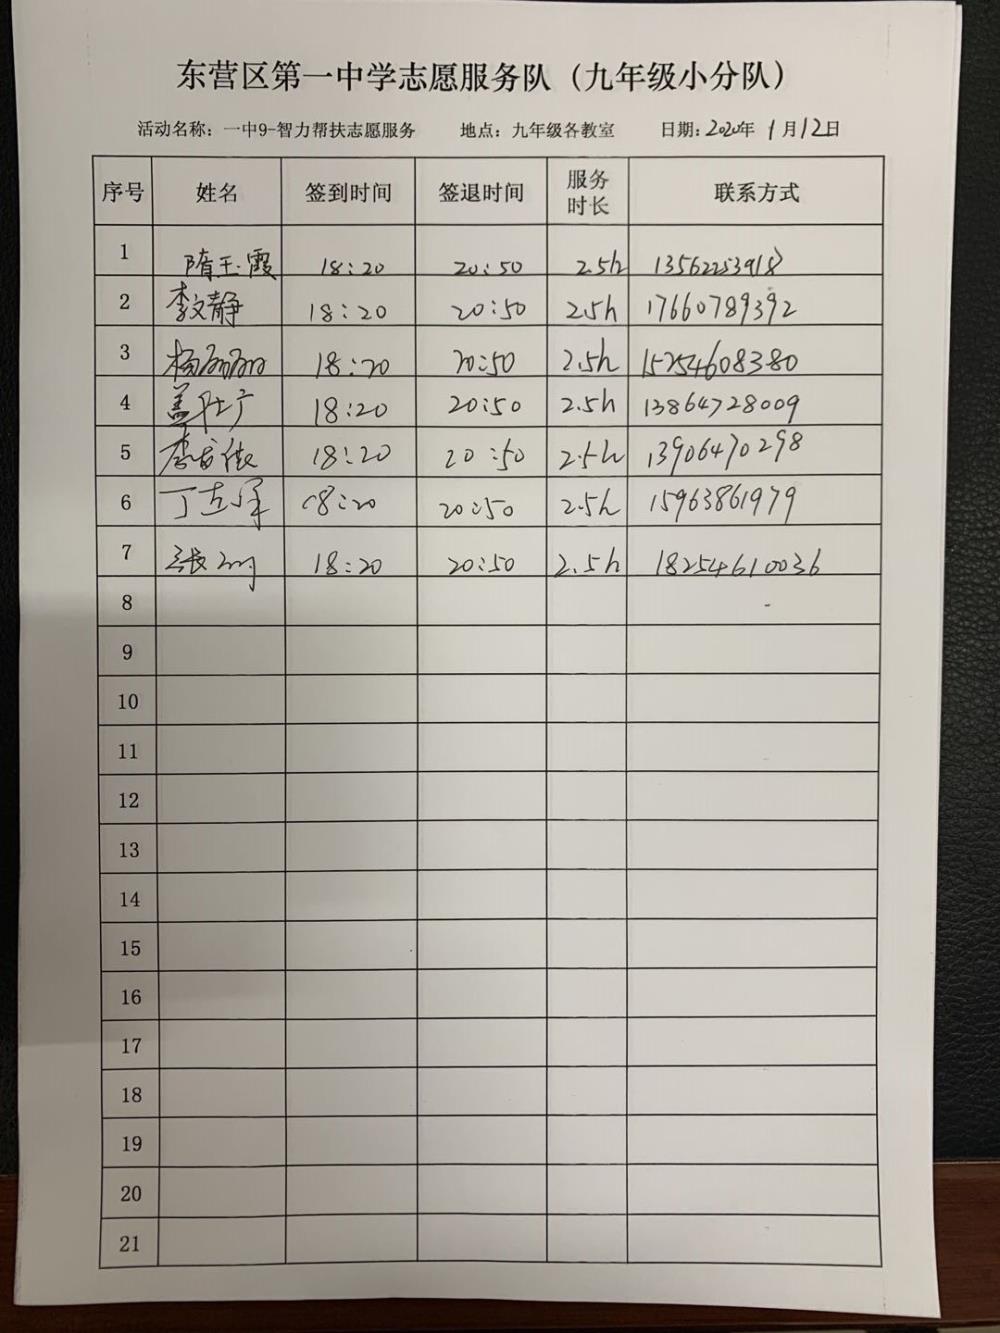 东营区第一中学志愿服务队（九年级小分队）
活动名称：一中9-智力帮扶志愿服务 地点：九年级各教室 日期：2020年 1月12日
序号 姓名 签到时间 签退时间 服务时长 联系方式
1 隋玉霞 18:20 20:50 2.5h 13562253918
2 李文静 18:20 20:50 2.5h 17660789392
3 杨丽丽 18:20 20:50 2.5h 15254608380
4 盖 广 18:20 20:50 2.5h 13864728009
5 李 18:20 20:50 2.5h 13906470298
6 丁 18:20 20:50 2.5h 15963861979
7 张 18:20 20:50 2.5h 18254610036
8
9
10
11
12
13
14
15
16
17
18
19
20
21